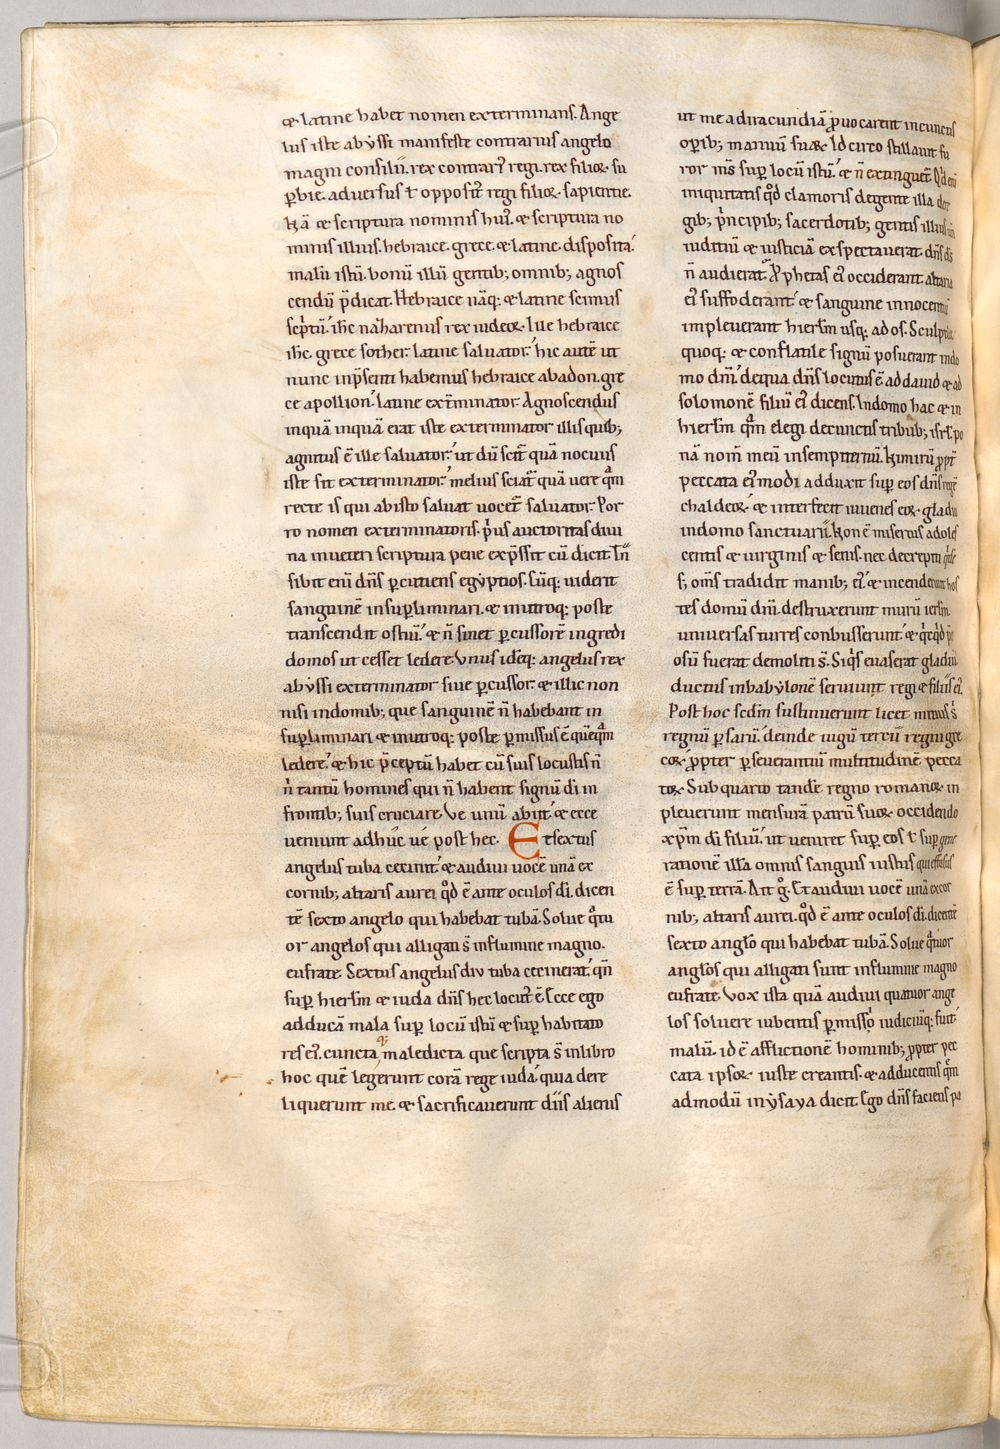 & latine habet nomen exterminans. Ange
lus iste abyssi manifeste contrarius angelo
magni consilii. rex contrari᷒ regi. rex filioꝝ su
ꝑbie. adversus ł opposit᷒ regi filioꝝ sapientie.
Nā & scriptura nominis hui᷒. & scriptura no
minis illius. hebraice. grece. & latine. disposita.
malū istū. bonū illū gentib; omnib; agnos
cendū p̄dicat. Hebraice nāq; & latine scimus
sc̄ptū. ih̄c nazarenus rex iudeoꝝ. Ille hebraice
ih̄c. grece sother. latine salvator. hic autē ut
nunc in p̄senti habemus hebraice abadon. gre
ce apollion. latine ext̄minator. Agnoscendus
inquā inquā erat iste exterminator illis quib;
agnitus ē ille salvator. ut dū scit᷒ quā nocuus
iste sit exterminator. melius sciat᷒ quā uere qm̄
recte is qui ab isto saluat uocet᷒ saluator. Por
ro nomen exterminatoris. p̄us auctoritas diui
na in ueteri scriptura pene exp̄ssit cū dicit.
sibit eni dn̄s ꝑcutiens egyptios. Cūq; uiderit
sanguinē in suꝑliminari. & in utroq; poste
transcendit ostiū. & n̄ sinet ꝑcussorē ingredi
domos ut cesset ledere. Vnus ideq; angelus rex
abyssi exterminator siue ꝑcussor. & illic non
nisi in domib; que sanguinē n̄ habebant in
suꝑliminari & in utroq; poste ꝑmissus ē quēq̄m
ledere. & hic p̄ceptū habet cū suis locustis n̄
n̄ tantū homines qui n̄ habent signū di in
frontib; suis cruciare. Ve unū abiit. & ecce
ueniunt adhuc ue post hec. Et sextus
angelus tuba cecinit. & audiui uocē unā ex
cornib; altaris aurei qd̄ ē ante oculos di. dicen
tē sexto angelo qui habebat tubā. Solue q̄tu
or angelos qui alligati s̄ in flumine magno.
eufrate. Sextus angelus diu tuba cecinerat. qn̄
suꝑ hierlm̄ & iuda dn̄s hec locut᷒ ē. Ecce ego
adducā mala suꝑ locū istū & suꝑ habitato
res ei᷒. cuncta q; maledicta que scripta s̄ in libro
hoc quē legerunt corā rege iuda. quia dere
liquerunt me. & sacrificauerunt diis alienis
ut me ad iracundiā ꝓuocarent in cunctis
oꝑib; manuū suaꝝ. Idcirco stillauit fu
ror ms̄ suꝑ locū istū. & n̄ extinguet᷒.
iniquitatis qd̄ clamoris de gente illa
gib; p̄ncipib; sacerdotib; gentis illius
iudiciū & iusticiā exspectauerat dn̄s ds̄
n̄ audierat. Prophetas ei᷒ occiderant. altaria
ei᷒ suffoderant. & sanguine innocentū
impleuerant hierlm̄ usq; ad os. Sculptile
quoq; & conflatile signū posuerant in do
mo dn̄i. de qua dn̄s locutus ē ad dauid & ad
solomonē filiū ei᷒ dicens. In domo hac & in
hierlm̄ qm̄ elegi de cunctis tribub; isrl̄ po
nā nom̄ meū in sempiternū. Nimirū ꝓpt᷒
peccata ei᷒modi adduxit suꝑ eos dn̄s regē
chaldeoꝝ. & interfecit iuuenes eoꝝ. gladio
in domo sanctuarii. Non ē misertus adoles
centis & uirginis & senis. nec decrepiti
s; oms̄ tradidit manib; ei᷒. & incenderunt hos
tes domū dn̄i. destruxerunt murū ierlm̄.
universas turres conbusserunt. & q̄cq̄d p̄ci
osū fuerat demoliti s̄. Siq̄s euaserat gladiū
ductus in babylonē seruiuit regi & filiis ei᷒.
Post hoc sc̄dm sustinuerunt licet minus s̄
regnū ꝑsarū. deinde iugū terciū regni gre
coꝝ. ꝓpter ꝑseuerantiū multitudinē pecca
toꝝ. Sub quarto tandē regno romanoꝝ in
pleuerunt mensurā patrū suoꝝ. occidendo
xp̄m di filiū. ut ueniret suꝑ eos ł suꝑ gene
rationē illā omnis sanguis iustus qui effusus
ē suꝑ terrā. Ait g̊. Et audiui uocē unā ex cor
nib; altaris aurei. qd̄ ē ante oculos di. dicentē
sexto anglo qui habebat tubā. Solue q̄tuor
anglos qui alligati sunt in flumine magno
eufrate. Vox ista quā audiui quatuor ange
los soluere iubentis ꝑmissio iudiciūq; fuit.
malū. id ē afflictionē hominib; ꝓpter pec
cata ipsoꝝ iuste creantis. & adducentis qm̄
admodū in ysaya dicit. Ego dn̄s faciens pa